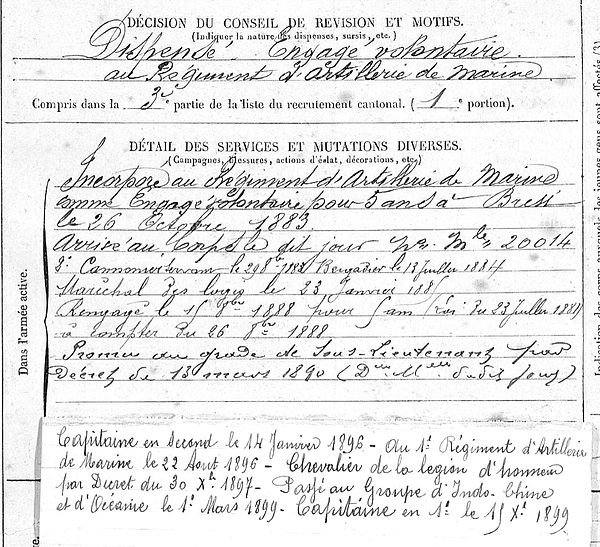 DÉCISION DU CONSEIL DE REVISION ET MOTIFS.
(Indiquer la nature des dispenses, sursis, etc.)
Dispensé. Engagé volontaire
au Régiment d'Artillerie de Marine
Compris dans la 3e partie de la liste du recrutement cantonal. ( 1e portion).
DÉTAIL DES SERVICES ET MUTATIONS DIVERSES.
(Campagnes, blessures, actions d'éclat, décorations, etc.)
Incorporé au Régiment d'Artillerie de Marine
comme Engagé volontaire pour 5 ans à Brest
le 26 Octobre 1883
Arrivé au Corps le dit jour No Mle 20014
2e Cannonier Servant le 29 8bre 1883 Brigadier le 13 Juillet 1884
Maréchal des logis le 23 Janvier
Rengagé le 15 8bre 1888 pour 5 ans (Loi du 23 Juillet 1881)
à compter du 26 8bre 1888
Promu au grade de Sous-Lieutenant par
Décret du 13 mars 1890 (Don Mlle dudit jour)
Dans l'armée active.
Capitaine en second le 14 Janvier 1896 - au 1r Régiment d'Artillerie
de Marine le 22 Aout 1896 - Chevalier de la legion d'honneur
par Décret du 30 Xbre 1897 - Passé au Groupe d'Indo-Chine
et d'Océanie le 1r Mars 1899 - Capitaine en 1r le 15 Xe 1899